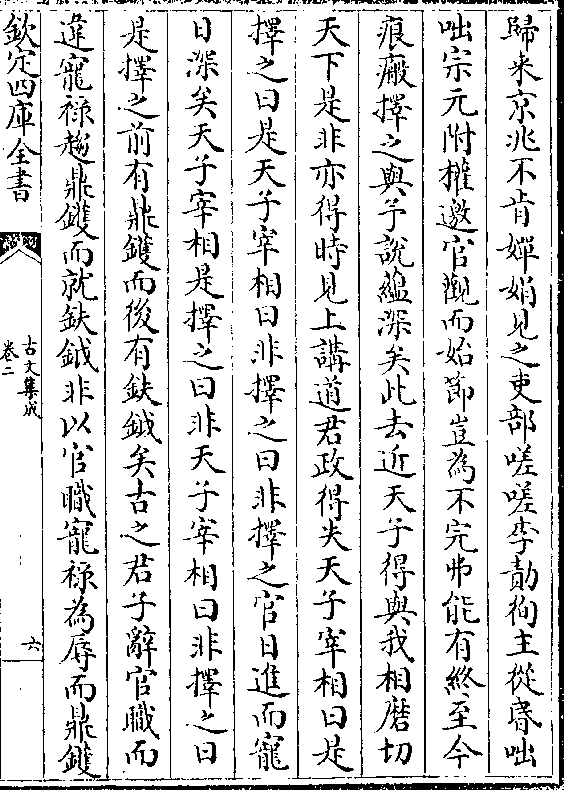 歸来京兆不肯嬋娟見之吏部嗟嗟李勣徇主從昬咄
咄宗元附權邀官觀而始節豈為不完弗能有終至今
痕瘢擇之與予說緼深矣此去近天子得與我相磨切
天下是非亦得時見上講道君政得失天子宰相曰是
擇之曰是天子宰相曰非擇之曰非擇之官日進而寵
日深矣天子宰相是擇之曰非天子宰相曰非擇之曰
是擇之前有鼎鑊而後有鈇鉞矣古之君子辭官職而
違寵禄趨鼎鑊而就鈇鉞非以官職寵禄為辱而鼎鑊
欽定四庫全書
古文集成
卷二
六